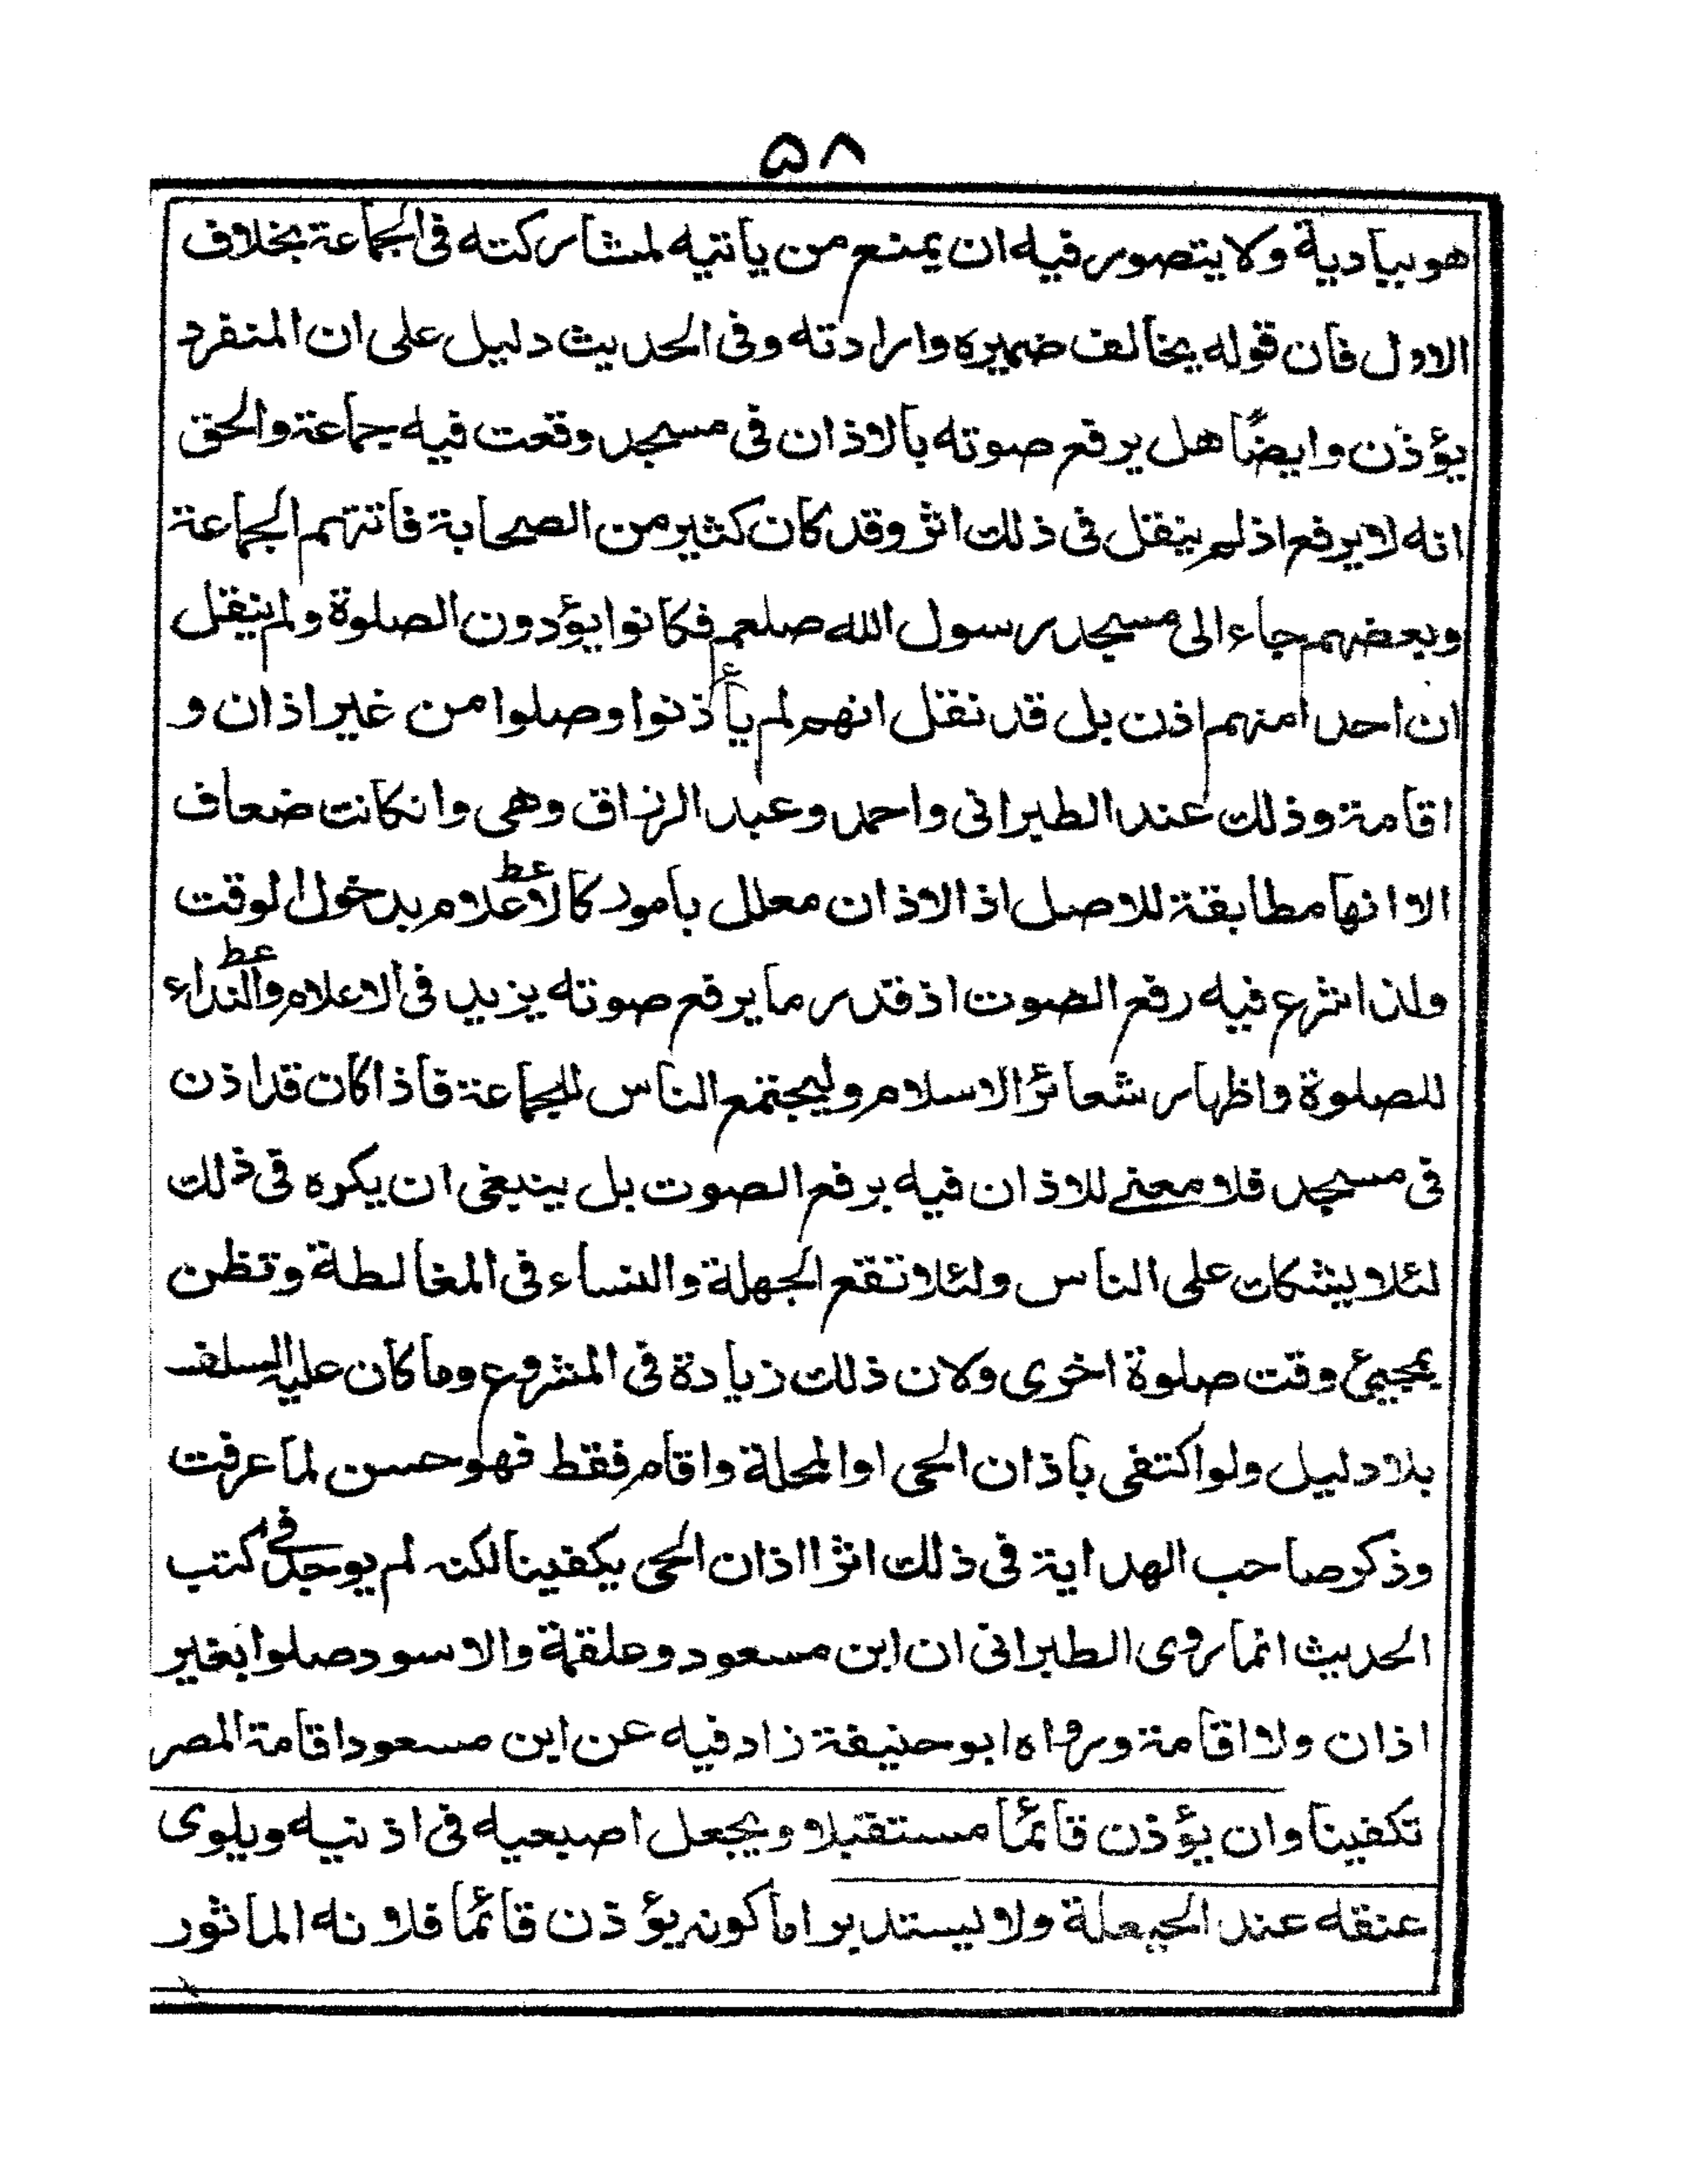 ۵۸
هو ببادية ولا يتصور فيه ان يمنع من يأتيه لمشاركته فى الجماعة بخلاف
الاول فان قوله يخالف ضميره وارادته وفى الحديث دليل على ان المنفرد
يؤذن وايضًا هل يرفع صوته بالاذان فى مسجد وقعت فيه جماعة والحق
انه لا يرفع اذ لم ينقل فى ذلك اثر وقد كان كثير من الصحابة فاتتهم الجماعة
وبعضهم جاء الى مسجد رسول الله صلعم فكانوا يؤدون الصلوة ولم ينقل
ان احدا منهم اذن بل قد نقل انهم لم يأذنوا وصلوا من غير اذان و
اقامة وذلك عند الطبرانى واحمد وعبد الرزاق وهى وانكانت ضعاف
الا انها مطابقة للاصل اذ الاذان معلل بامور كالاعلام بدخول الوقت
ولذا شرع فيه رفع الصوت اذ قدر ما يرفع صوته يزيد فى الاعلام والنداء
للصلوة واظهار شعائر الاسلام وليجتمع الناس للجماعة فاذا كان قد اذن
فى مسجد فلا معنے للاذان فيه برفع الصوت بل ينبغى ان يكره فى ذلك
لئلا يشكك على الناس ولئلا تقع الجهلة والنساء فى المغالطة وتظن
بمجيئ وقت صلوة اخرى ولان ذلك زيادة فى المشروع وما كان عليه السلف
بلا دليل ولو اكتفى باذان الحى او المحلة واقام فقط فهو حسن لما عرفت
وذكر صاحب الهداية فى ذلك اثرا اذان الحى يكفينا لكنه لم يوجد فى كتب
الحديث انما روى الطبرانى ان ابن مسعود وعلقمة والاسود صلوا بغير
اذان ولا اقامة ورواه ابو حنيفة زاد فيه عن ابن مسعود اقامة المصر
تكفينا وان يؤذن قائما مستقبلا ويجعل اصبعيه فى اذنيه ويلوى
عنقه عند الحيعلة ولا يستدير اما كونه يؤذن قائما فلانه الماثور